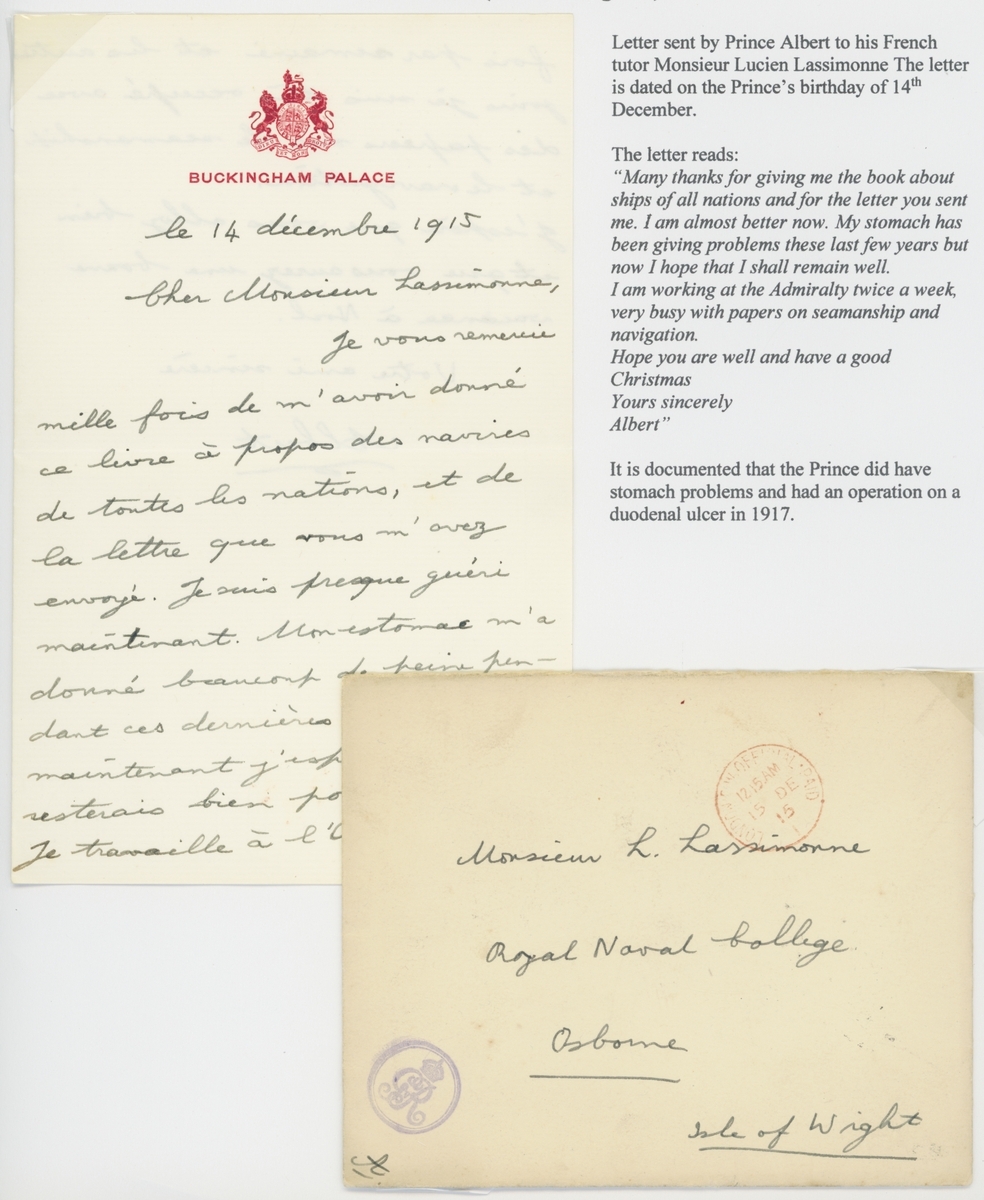 BUCKINGHAM PALACE
le 14 décembre 1915
Cher Monsieur Lassimonne,
Je vous remercie
mille fois de m'avoir donné
ce livre à propos des navires
de toutes les nations, et de
la lettre que vous m'avez
envoyé. Je suis presque guéri
maintenant. Mon estomac m'a
donné beaucoup de peine pen-
dant ces dernières
maintenant j'esp
resterais bien po
Je travaille à l'
Letter sent by Prince Albert to his French
tutor Monsieur Lucien Lassimonne The letter
is dated on the Prince's birthday of 14th
December.
The letter reads:
"Many thanks for giving me the book about
ships of all nations and for the letter you sent
me. I am almost better now. My stomach has
been giving problems these last few years but
now I hope that I shall remain well.
I am working at the Admiralty twice a week,
very busy with papers on seamanship and
navigation.
Hope you are well and have a good
Christmas
Yours sincerely
Albert"
It is documented that the Prince did have
stomach problems and had an operation on a
duodenal ulcer in 1917.
12.15AM
15 DE
15
Monsieur L. Lassimonne
Royal Naval College
Osborne
Isle of Wight